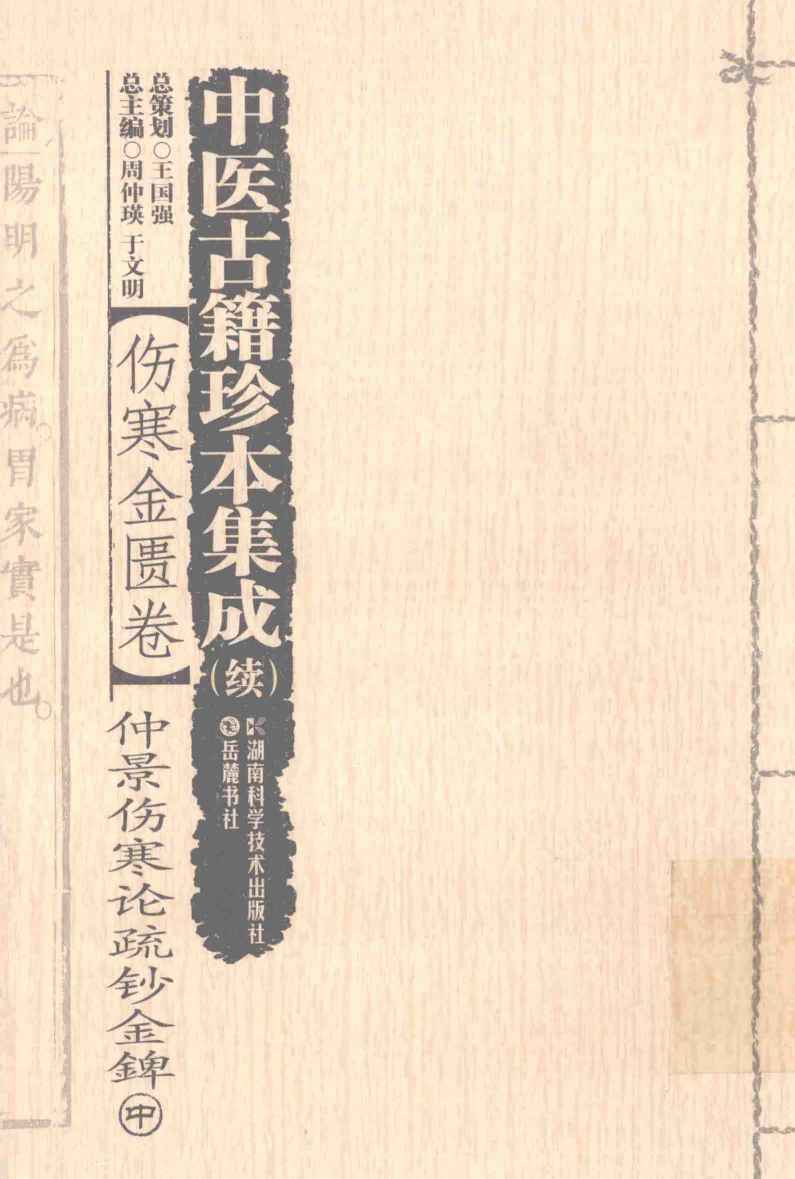 中医古籍珍本集成
（续）
湖南科学技术出版社
岳麓书社
总策划○王国强
总主编○周仲瑛 于文明
【伤寒金匮卷】
仲景伤寒论疏钞金錍
中
論陽明之為病。胃家實是也。